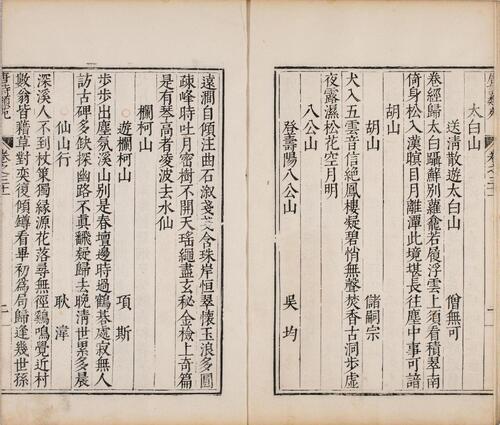 太白山
送清散遊太白山 僧無可
卷經歸太白躡蘚別蘿龕若履浮雲上須看積翠南
倚身松入漢瞑目月離潭此境堪長往塵中事可諳
胡山
胡山 儲嗣宗
犬入五雲音信絕鳳樓凝碧悄無聲焚香古洞步虛
夜露濕松花空月明
八公山
登壽陽八公山 吳均
遠澗自傾注曲石溆戔戔含珠岸恒翠懷玉浪多圓
疎峰時吐月密樹不開天瑤繩盡玄秘金檢上奇篇
是有琴高者凌波去水仙
欄柯山
遊欄柯山 項斯
步步出塵氛溪山別是春壇邊時過鶴棊處寂無人
訪古碑多缺探幽路不真飜疑歸去晚清世累多晨
仙山行 耿湋
深溪人不到杖策獨緣源花落尋無徑鷄鳴覺近村
數翁皆藉草對奕復傾罇看畢初爲局歸逢幾世孫